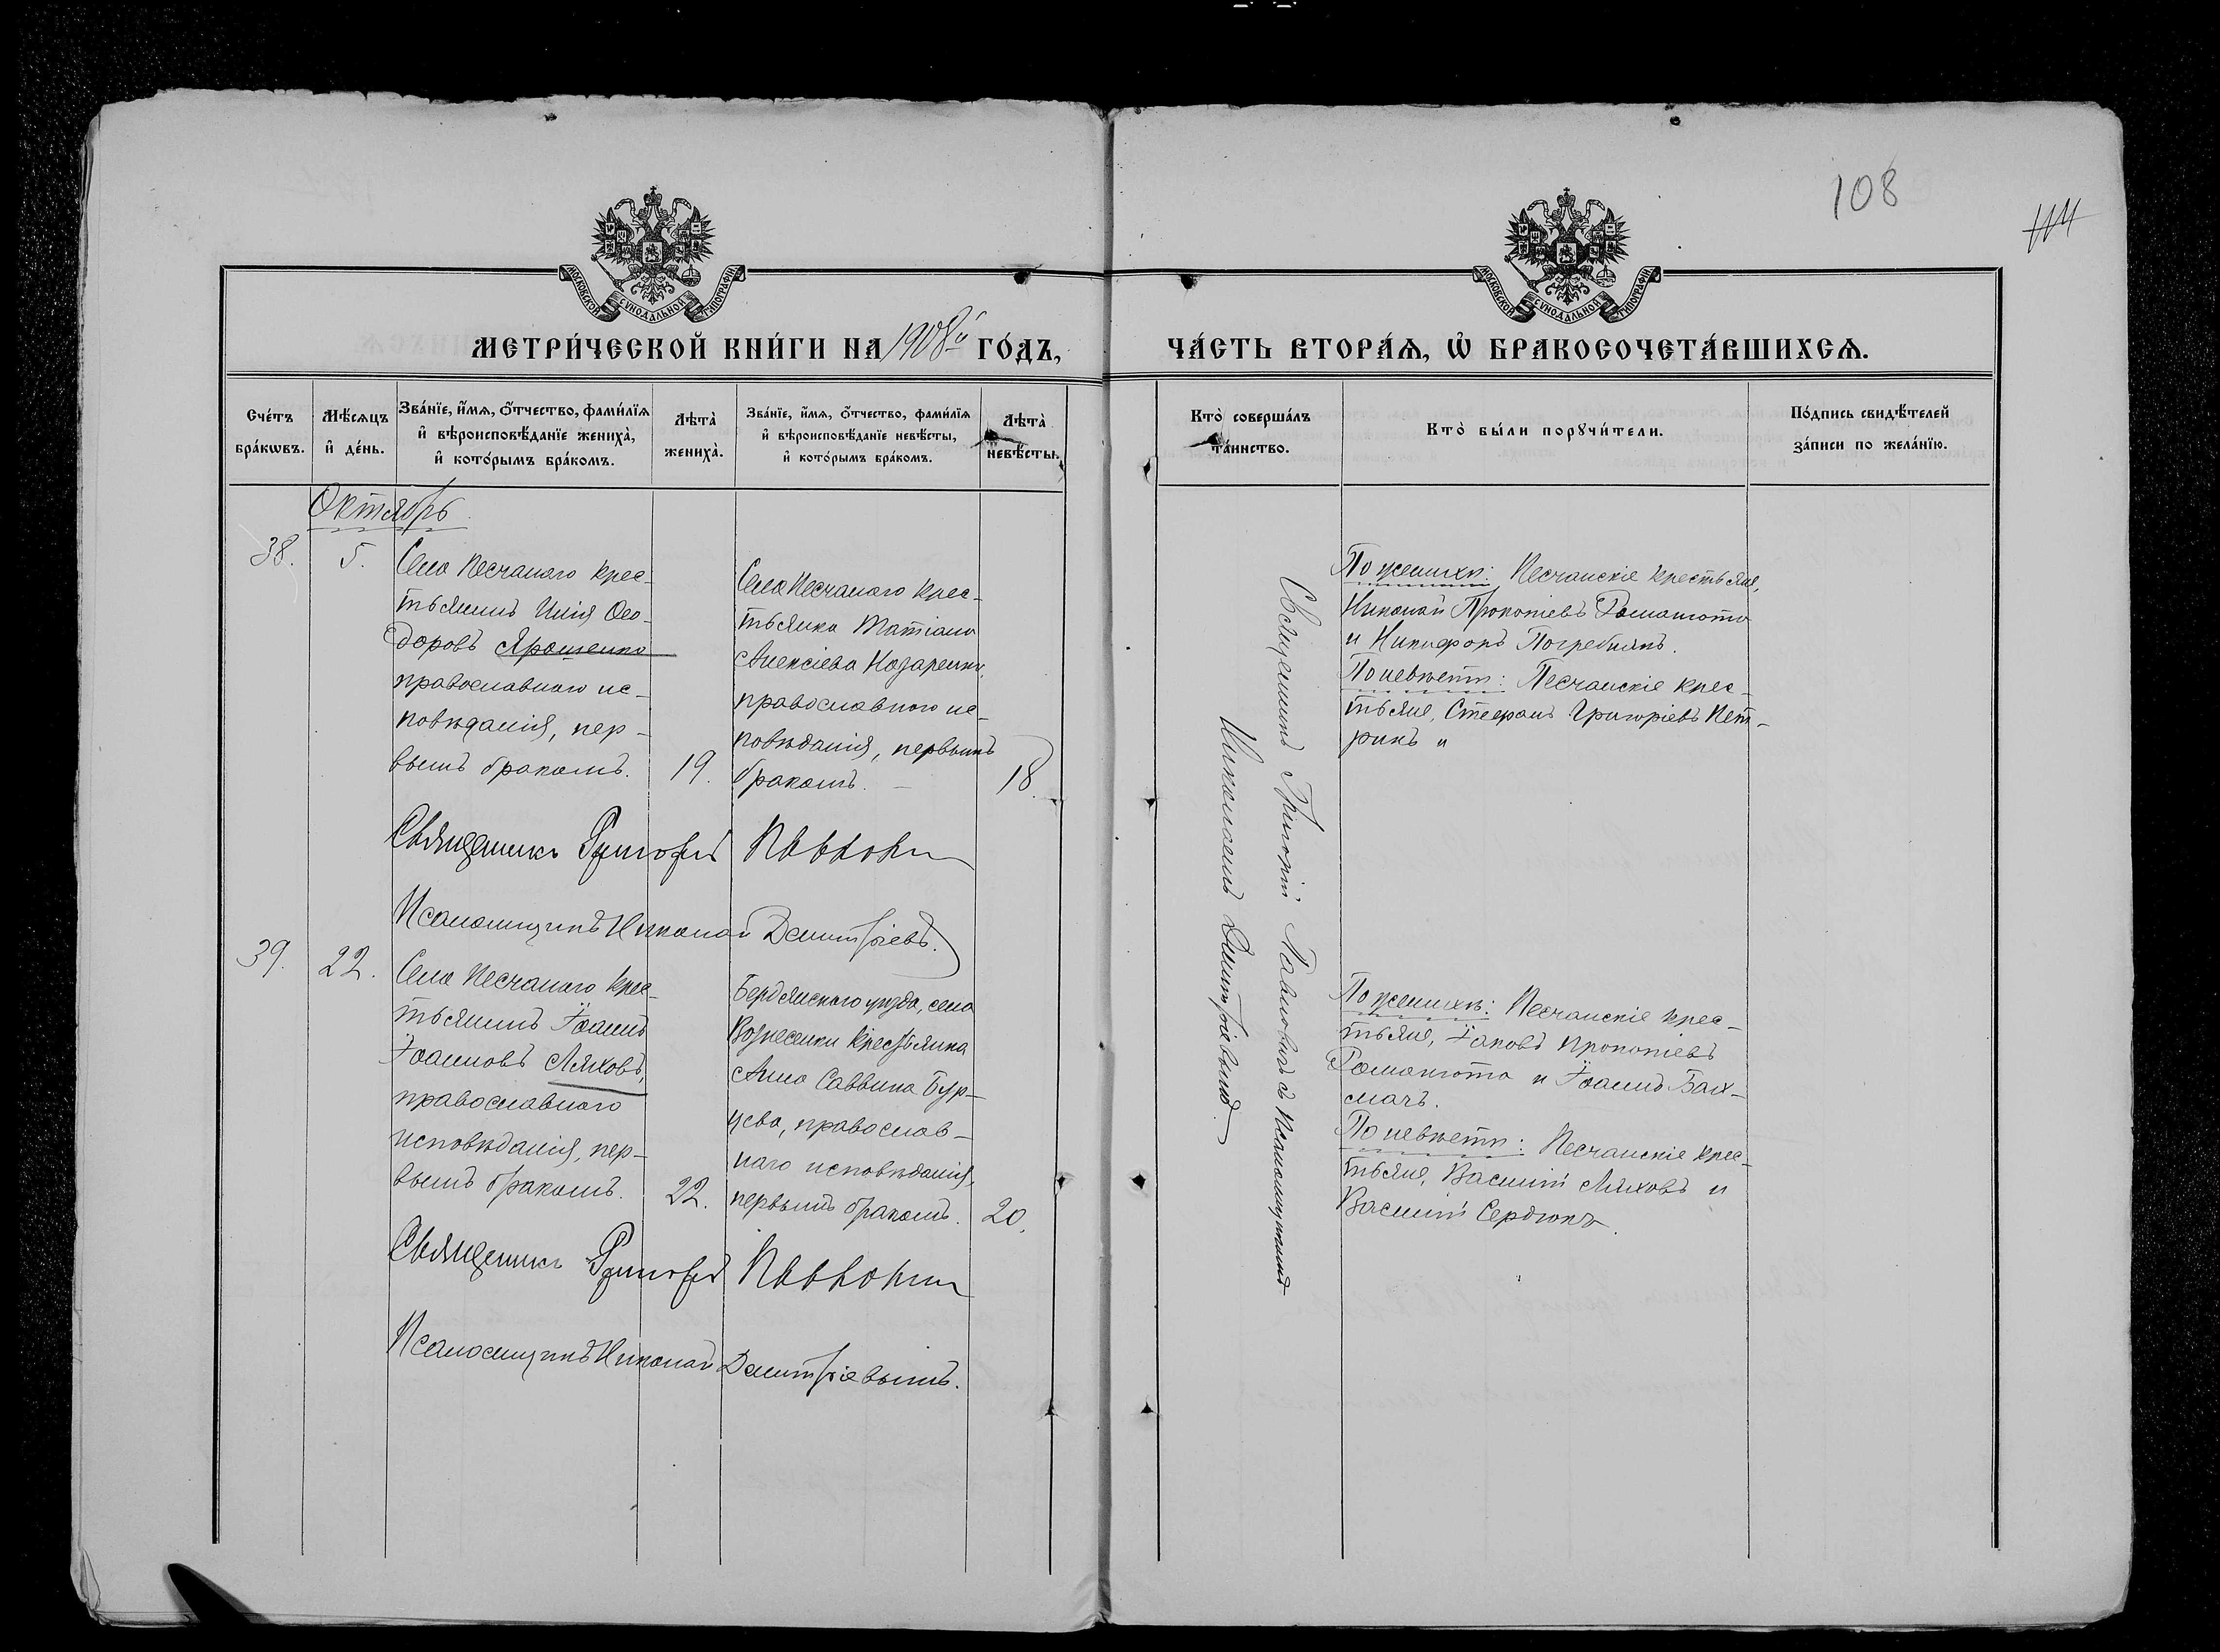 108
114
МОСКОВСКОЙ СѴНОДАЛЬНОЙ ТИПОГРАФІИ
МОСКОВСКОЙ СѴНОДАЛЬНОЙ ТИПОГРАФІИ
МЕТРИ́ЧЕСКОЙ КНИ́ГИ НА 1908й ГО́ДЪ,
ЧА́СТЬ ВТОРА́Ѧ, Ѽ БРАКОСОЧЕТА́ВШИХСѦ.
Сче́тъ бра́кѡвъ.
Мѣ́сѧцъ и҆ де́нь.
Зва́нїе, и҆́мѧ, ѻ҆́тчество, фами́лїѧ и҆ вѣроисповѣ́данїе жениха̀, и҆ кото́рымъ бра́комъ.
Лѣта̀ жениха̀.
Зва́нїе, и҆́мѧ, ѻ҆́тчество, фами́лїѧ и҆ вѣроисповѣ́данїе невѣ́сты, и҆ кото́рымъ бра́комъ.
Лѣта̀ невѣ́сты.
Кто̀ соверша́лъ та́инство.
Кто̀ бы́ли порꙋчи́тели.
По́дпись свидѣ́телей за́писи по жела́нїю.
Октябрь
38.
5.
Села Песчанаго крес-
тьянинъ Илія Ѳео-
доровъ Ярошенко
православнаго ис-
повѣданія, пер-
вымъ бракомъ.
19.
Села Песчанаго крес-
тьянка Татіана
Алексіева Назаренко,
православнаго ис-
повѣданія, первымъ
бракомъ.
18.
Священникъ Григорій Павловичъ съ Псаломщикомъ
Николаемъ Димитріевымъ.
По женихѣ: Песчанскіе крестьяне,
Николай Прокопіевъ Романюта
и Никифоръ Погребнякъ.
По невѣстѣ: Песчанскіе крес-
тьяне, Стефанъ Григоріевъ Пет-
рикъ и
Священникъ Григорій Павловичъ
Псаломщикъ Николай Димитріевъ.
39.
22.
Села Песчанаго крес-
тьянинъ Іоаннъ
Іоанновъ Ляховъ,
православнаго
исповѣданія, пер-
вымъ бракомъ.
22.
Бердянскаго уѣзда, села
Вознесенки крестьянка
Анна Саввина Бур-
цева, православ-
наго исповѣданія,
первымъ бракомъ.
20.
По женихѣ: Песчанскіе крес-
тьяне, Іаковъ Прокопіевъ
Романюта и Іоаннъ Бах-
мачъ.
По невѣстѣ: Песчанскіе крес-
тьяне, Василій Ляховъ и
Василій Сердюкъ.
Священникъ Григорій Павловичъ
Псаломщикъ Николай Димитріевымъ.